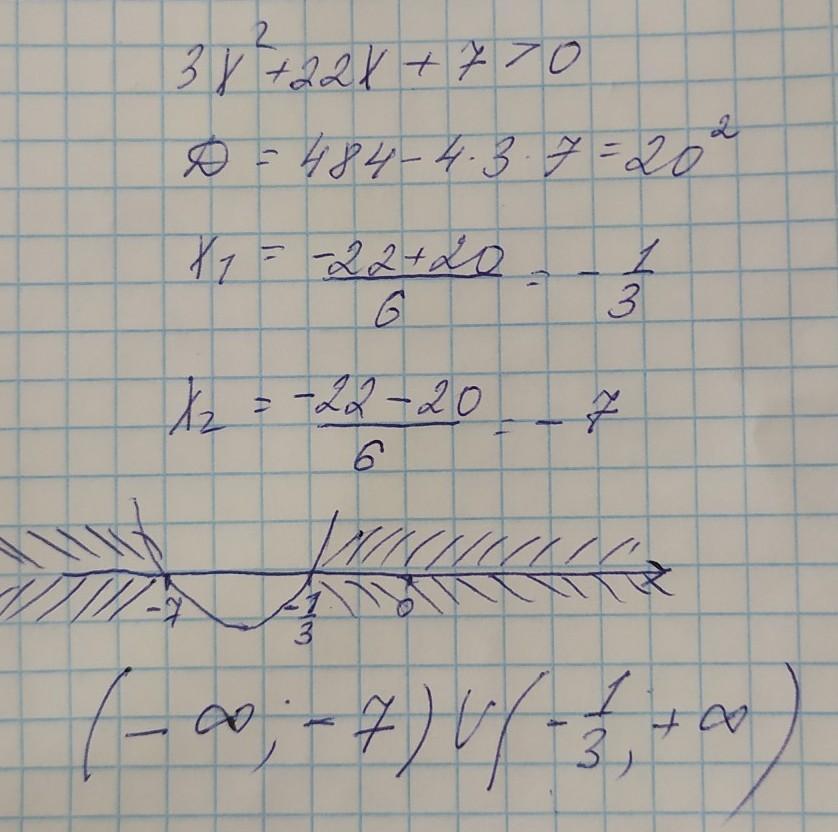 3x² + 22x + 7 > 0
D = 484 - 4 · 3 · 7 = 20²
x₁ = (-22 + 20)/6 = -1/3
x₂ = (-22 - 20)/6 = -7
-7 -1/3 0
(-∞; -7) ∪ (-1/3; +∞)